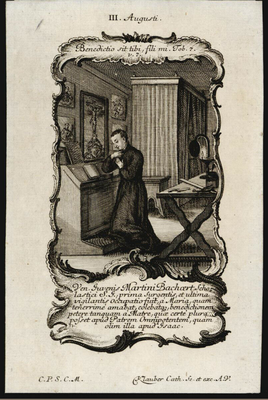 III. Augusti.
Benedictio sit tibi, fili mi. Tob. 7.
Ven. Juvenis Martini Bachart Scho-
lastici S.J. prima surgentis, et ultima
vigilantis occupatio fuit, a Maria, quam
tenerrime amabat, colebatq; benedictionem
petere tanquam a Matre, quæ certe plura
posset apud Patrem Omnipotentem, quam
olim illa apud Isaac.
C.P.S.C.M.
Klauber Cath. Sc. et exc. A.V.